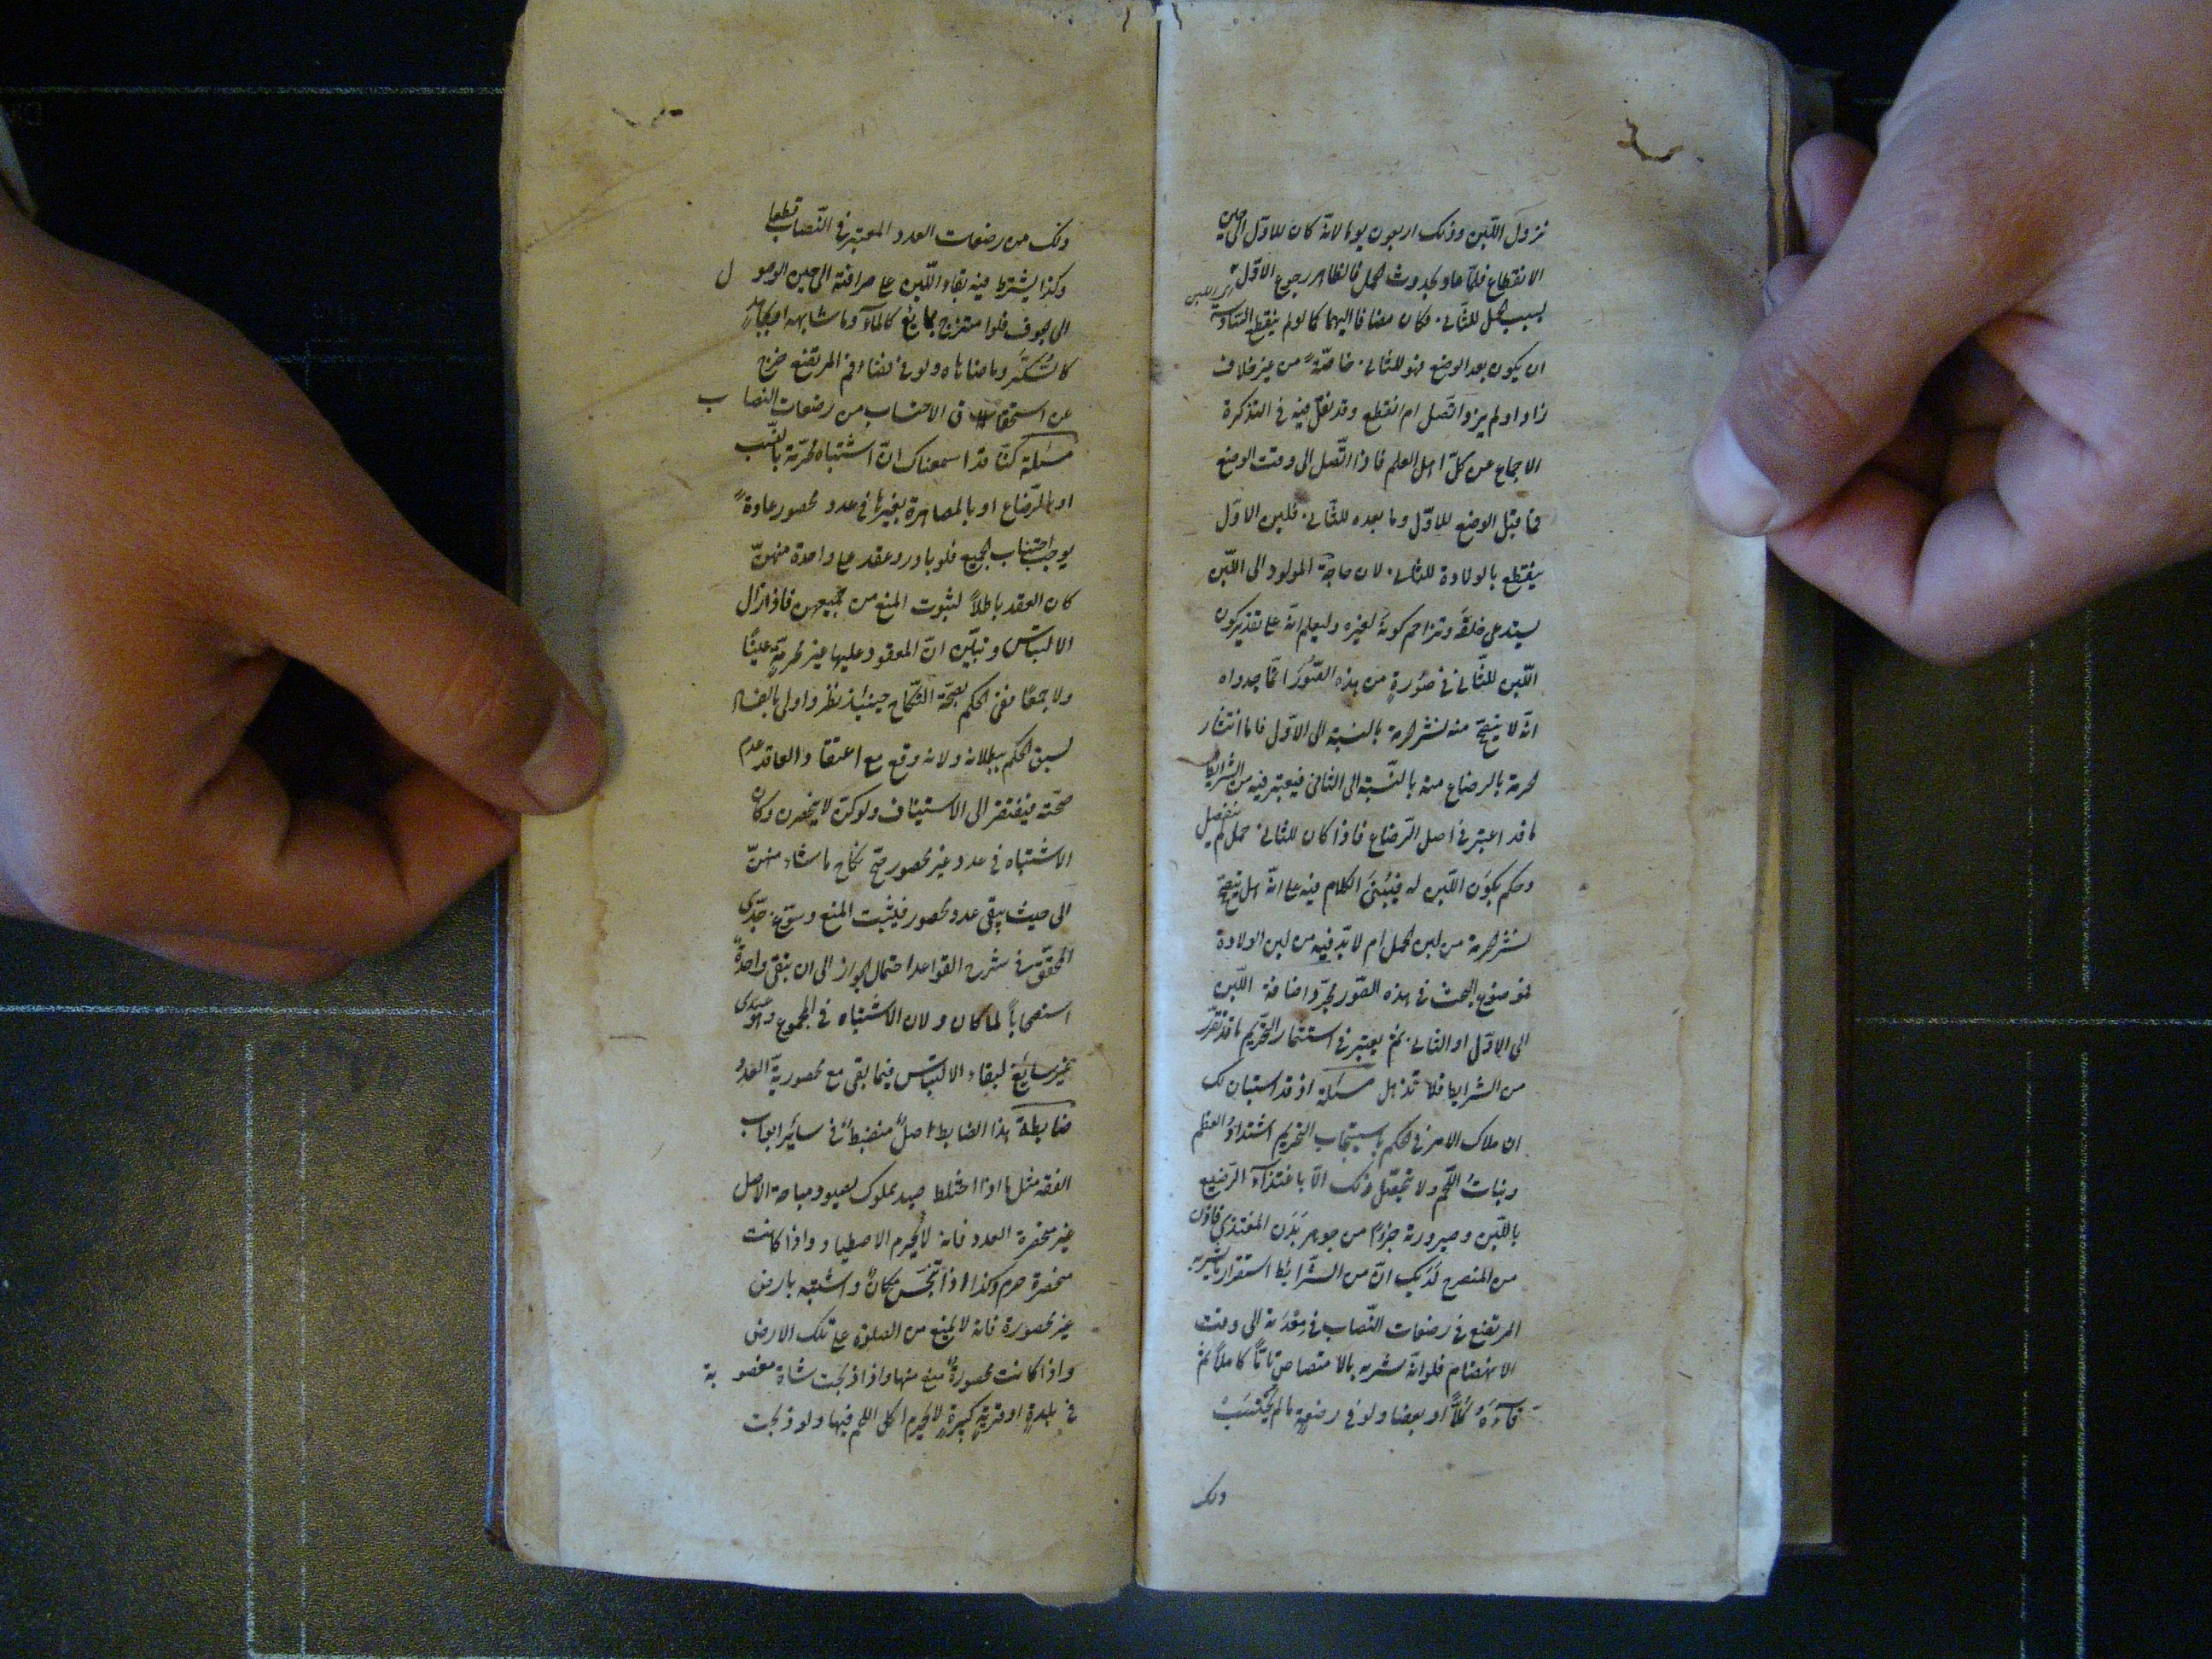 نزول اللبن وذلك اربعون يوما لانه كان للاوّل الى حين
الانقطاع فلمّا عاد بحدوث الحمل فالظاهر رجوع الاوّل
بسبب الحمل للثانى فكان مضافا اليهما كما لو لم ينقطع
ان يكون بعد الوضع فهو للثانى خاصّةً من غير خلاف
زاد او لم يزد اتّصل ام انقطع وقد نقل فيه فى التذكرة
الاجماع عن كلّ اهل العلم فاذا اتّصل الى وقت الوضع
فما قبل الوضع للاوّل وما بعده للثانى فلبن الاوّل
ينقطع بالولادة للثانى لان حاجة المولود الى اللبن
يستدعى خلقه وتزاحم كونه لغيره وليعلم انّه على تقدير كون
اللبن للثّانى فى صورةٍ من هذه الصُّوَر انّما جدواه
انّه لا يصحّ منه نشر الحرمة بالنسبة الى الاوّل فاما انتشار
الحرمة بالرضاع منه بالنّسبة الى الثانى فيعتبر فيه من الشرايط
ما قد اعتبر فى اصل الرّضاع فاذا كان للثانى حمل لم ينفصل
وحكم بكون اللبن له فيُبْنى الكلام فيه على انّه هل يصحّ
نشر الحرمة من لبن الحمل ام لا بدّ فيه من لبن الولادة
فموضوع البحث فى هذه الصّور مجرّد اضافة اللّبن
الى الاوّل او الثانى ثمّ يعتبر فى استثمار التحريم ما قد تقرّر
من الشرايط فلا تذهل مسئلة اذ قد استبان لك
ان ملاك الامر فى الحكم باستيجاب التحريم اشتداد العظم
ونبات اللّحم ولا تحصّل ذلك الّا باغتذاء الرّضيع
باللّبن وصيرورته جزءً من جوهر بَدَن المغتذى فاذن
من المنصرح لديك انّ من الشّرايط استقرار ما شربه
المرتضع فى رضعات النّصاب فى معدته الى وقت
الانهضام فلو انّه شربه بالامتصاص تامّاً كاملاً ثم
قاءَهُ كُلّاً او بعضا ولو فى رضعةٍ ما لم يحتسب
ذلك
ذلك من رضعات العدد المعتبر فى النّصاب قطعا
وكذا يشترط فيه بقاء اللّبن على صرافته الى حين الوصول
الى الجوف فلو امتزج بمائع كالماء وما شابهه او بجامد
كالسُّكّر وما ضاهاه ولو فى فضاء فم المرتضع خرج
عن استحقاق الاحتساب من رضعات النصاب
مسئلة كنّا قد اسمعناك انّ اشتباه محرّمة بالنّسب
او الرّضاع او بالمصاهرة بغيرها فى عدد محصور عادةً
يوجب اجتناب الجميع فلو بادر وعقد على واحدة منهنّ
كان العقد باطلاً لثبوت المنع من جميعهن فاذا زال
الالتباس وتبيّن انّ المعقود عليها غير محرّمة عليه عيناً
ولا جمعًا ففى الحكم بصحّة النّكاح حينئذ نظر واولى بالفساد
لسبق الحكم ببطلانه ولانه وقع مع اعتقاد العاقد عدم
صحّته فيفتقر الى الاستيناف ولو كنّ لا ينحصرن وكان
الاشتباه فى عدد غير محصور صحّ نكاح ما شاء منهنّ
الى حيث يبقى عدد محصور فيثبت المنع وسوّغ جدّى
المحقّق فى شرح القواعد احتمال الجواز الى ان يبقى واحدةً
استصحاباً لما كان ولان الاشتباه فى المجموع وهو عندى
غير سايغ لبقاء الالتباس فيما بقى مع محصوريّة العدد
ضابطة هذا الضابط اصلٌ منضبطٌ فى ساير ابواب
الفقه مثل ما اذا اختلط صيد مملوك بصيود مباحة الاصل
غير منحصرة العدد فانه لا يحرم الاصطياد واذا كانت
منحصرة حرم وكذا اذا تنجّس مكانٌ واشتبه بارض
غير محصورة فانه لا يمنع من الصلوة على تلك الارض
واذا كانت محصورةً منع منها واذا ذبحت شاة مغصوبة
فى بلدةٍ او قريةٍ كبيرةٍ لا يحرم اكل اللحم فيها ولو ذبحت